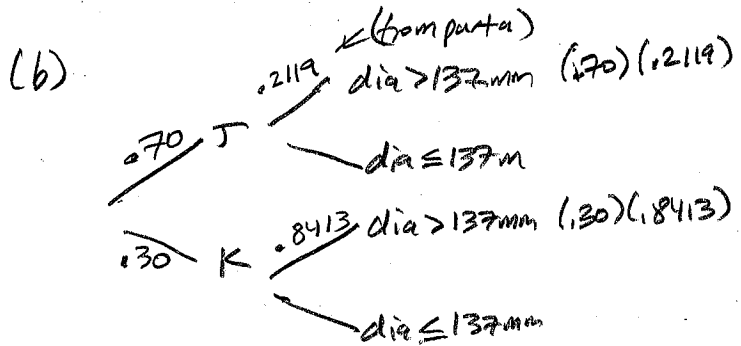 (from part a)
(b) .2119 dia>137mm (.70)(.2119)
.70 J
dia≤137m
.8413 dia>137mm (.30)(.8413)
.30 K
dia≤137mm